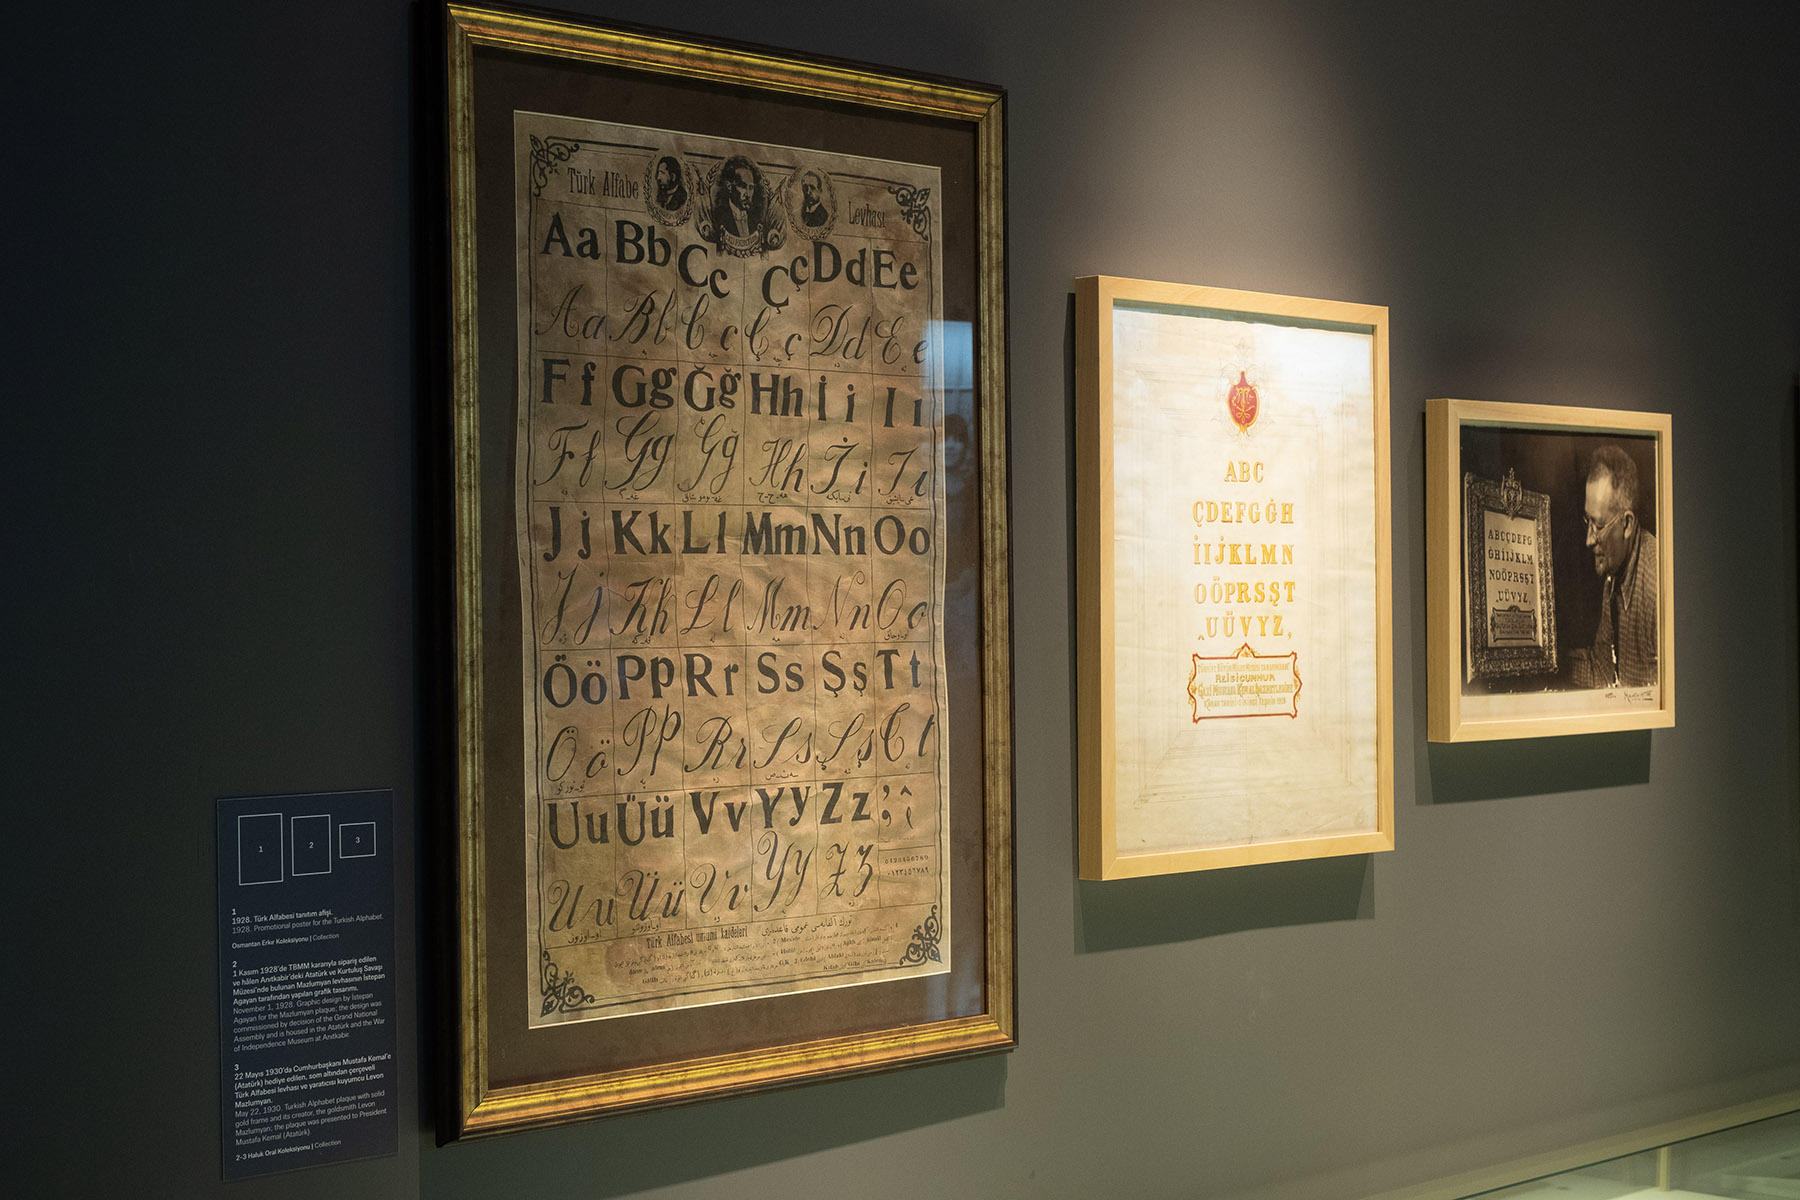 Türk Alfabe Levhası
Aa Bb Cc Çç Dd Ee
Aa Bb Cc Çç Dd Ee
Ff Gg Ğğ Hh İi Iı
Ff Gg Ğğ Hh İi Iı
Jj Kk Ll Mm Nn Oo
Jj Kk Ll Mm Nn Oo
Öö Pp Rr Ss Şş Tt
Öö Pp Rr Ss Şş Tt
Uu Üü Vv Yy Zz
Uu Üü Vv Yy Zz
0123456789
٠١٢٣٤٥٦٧٨٩
Türk Alfabesi umumî kaideleri
ABC
ÇDEFGĠH
İIJKLMN
OÖPRSŞT
^UÜVYZ,
REİSİCUNHUR
GAZİ MUSTAFA KEMAL HAZRETLERİNE
ABCÇDEFG
ĠHİIJKLM
NOÖPRSŞT
^UÜVYZ,
1
2
3
1
1928. Türk Alfabesi tanıtım afişi.
1928. Promotional poster for the Turkish Alphabet.
Osmantan Erkır Koleksiyonu | Collection
2
1 Kasım 1928'de TBMM kararıyla sipariş edilen
ve hâlen Anıtkabir'deki Atatürk ve Kurtuluş Savaşı
Müzesi'nde bulunan Mazlumyan levhasının İstepan
Agayan tarafından yapılan grafik tasarımı.
November 1, 1928. Graphic design by İstepan
Agayan for the Mazlumyan plaque; the design was
commissioned by decision of the Grand National
Assembly and is housed in the Atatürk and the War
of Independence Museum at Anıtkabir.
3
22 Mayıs 1930'da Cumhurbaşkanı Mustafa Kemal'e
(Atatürk) hediye edilen, som altından çerçeveli
Türk Alfabesi levhası ve yaratıcısı kuyumcu Levon
Mazlumyan.
May 22, 1930. Turkish Alphabet plaque with solid
gold frame and its creator, the goldsmith Levon
Mazlumyan; the plaque was presented to President
Mustafa Kemal (Atatürk)
2-3 Haluk Oral Koleksiyonu | Collection